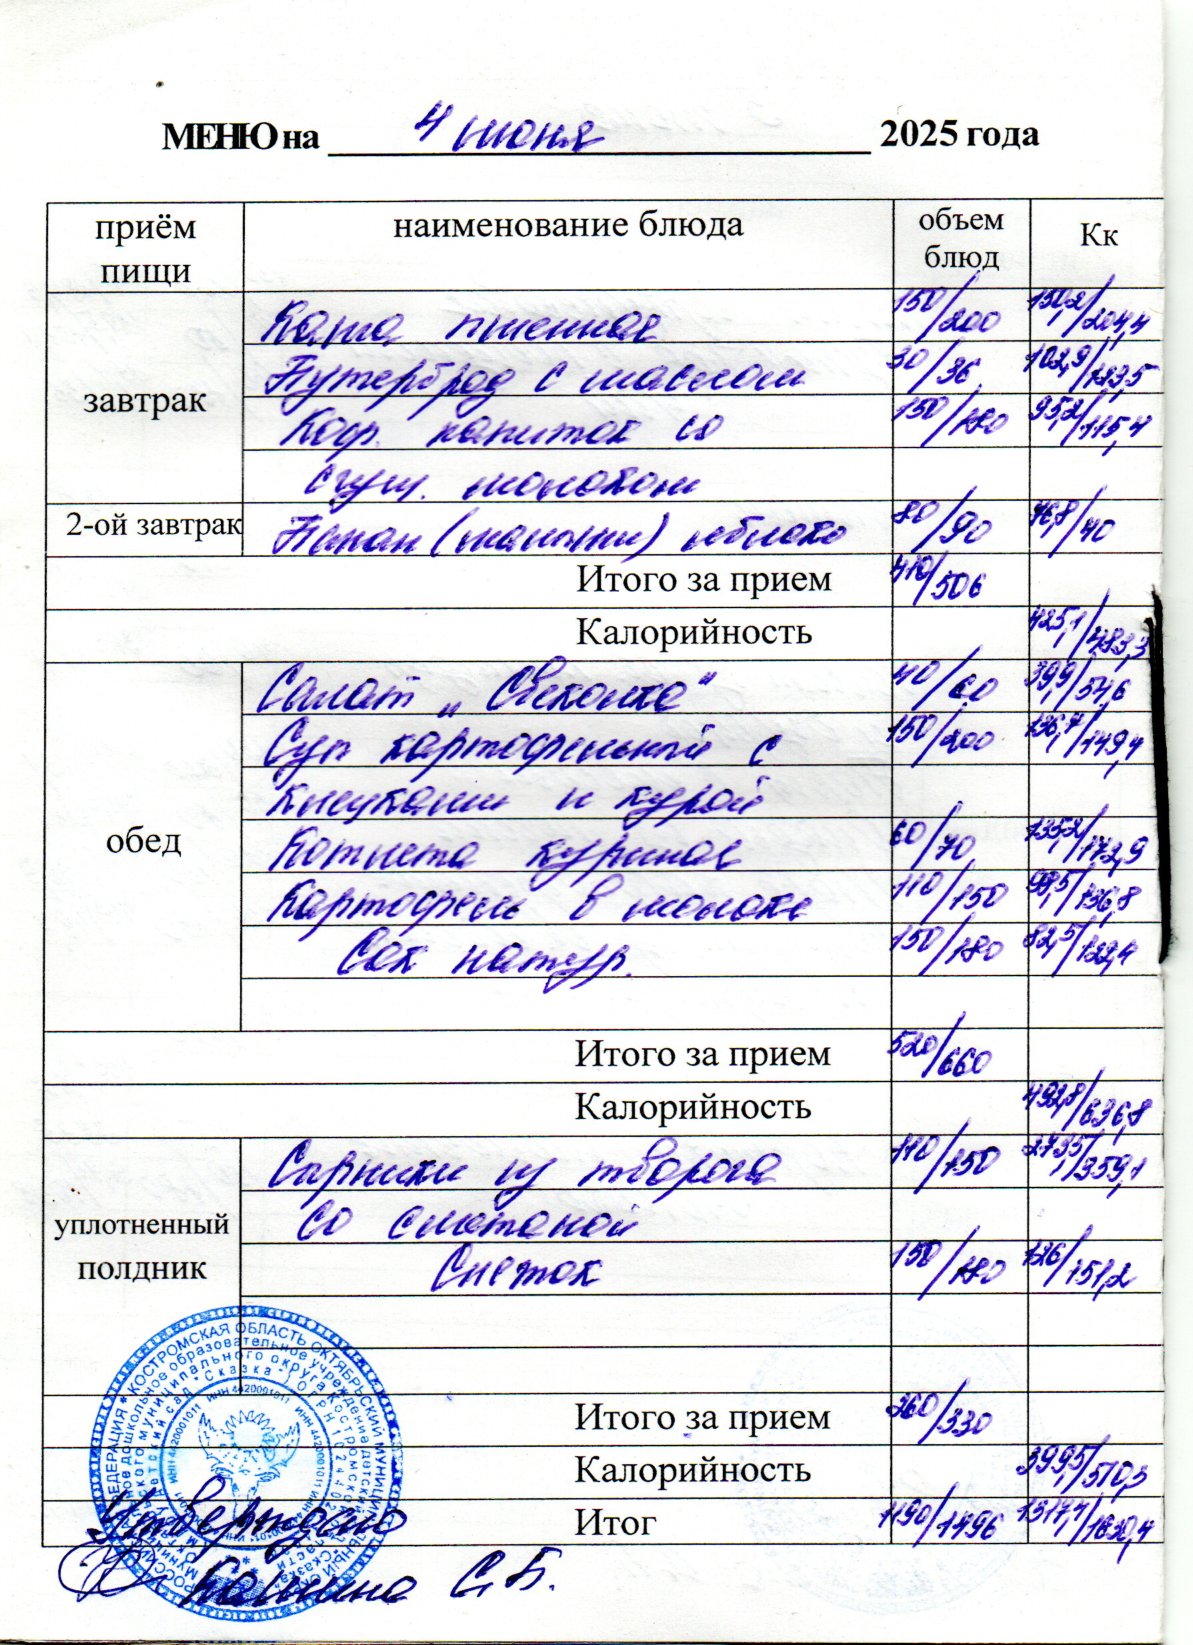 МЕНЮ на 4 июня 2025 года
приём пищи наименование блюда объем блюд Кк
завтрак
Каша пшенная 150/200 150,2/204,4
Бутерброд с маслом 30/36 102,9/123,5
Коф. напиток со 150/180 95,2/115,4
сгущ. молоком
2-ой завтрак Банан (мальчики) яблоко 80/90 76,8/40
Итого за прием 410/506
Калорийность 425,1/483,3
обед
Салат „Свеколка" 40/60 39,9/54,6
Суп картофельный с 150/200 136,7/149,4
клецками и курой
Котлета куриная 60/70 135,2/172,9
Картофель в молоке 110/150 98,5/136,8
Сок натур. 150/180 82,5/122,4
Итого за прием 520/660
Калорийность 492,8/636,8
уплотненный полдник
Сырники из творога 110/150 273,5/359,1
со сметаной
Снежок 150/180 126/151,2
Итого за прием 260/330
Калорийность 399,5/510,3
Итог 1190/1496 1317,4/1630,4
Утверждаю
С.Б.
КОСТРОМСКАЯ ОБЛАСТЬ ОКТЯБРЬСКИЙ
дошкольное образовательное учреждение детский
муниципального округа Костромской
сад "Сказка"
ИНН 4420001011